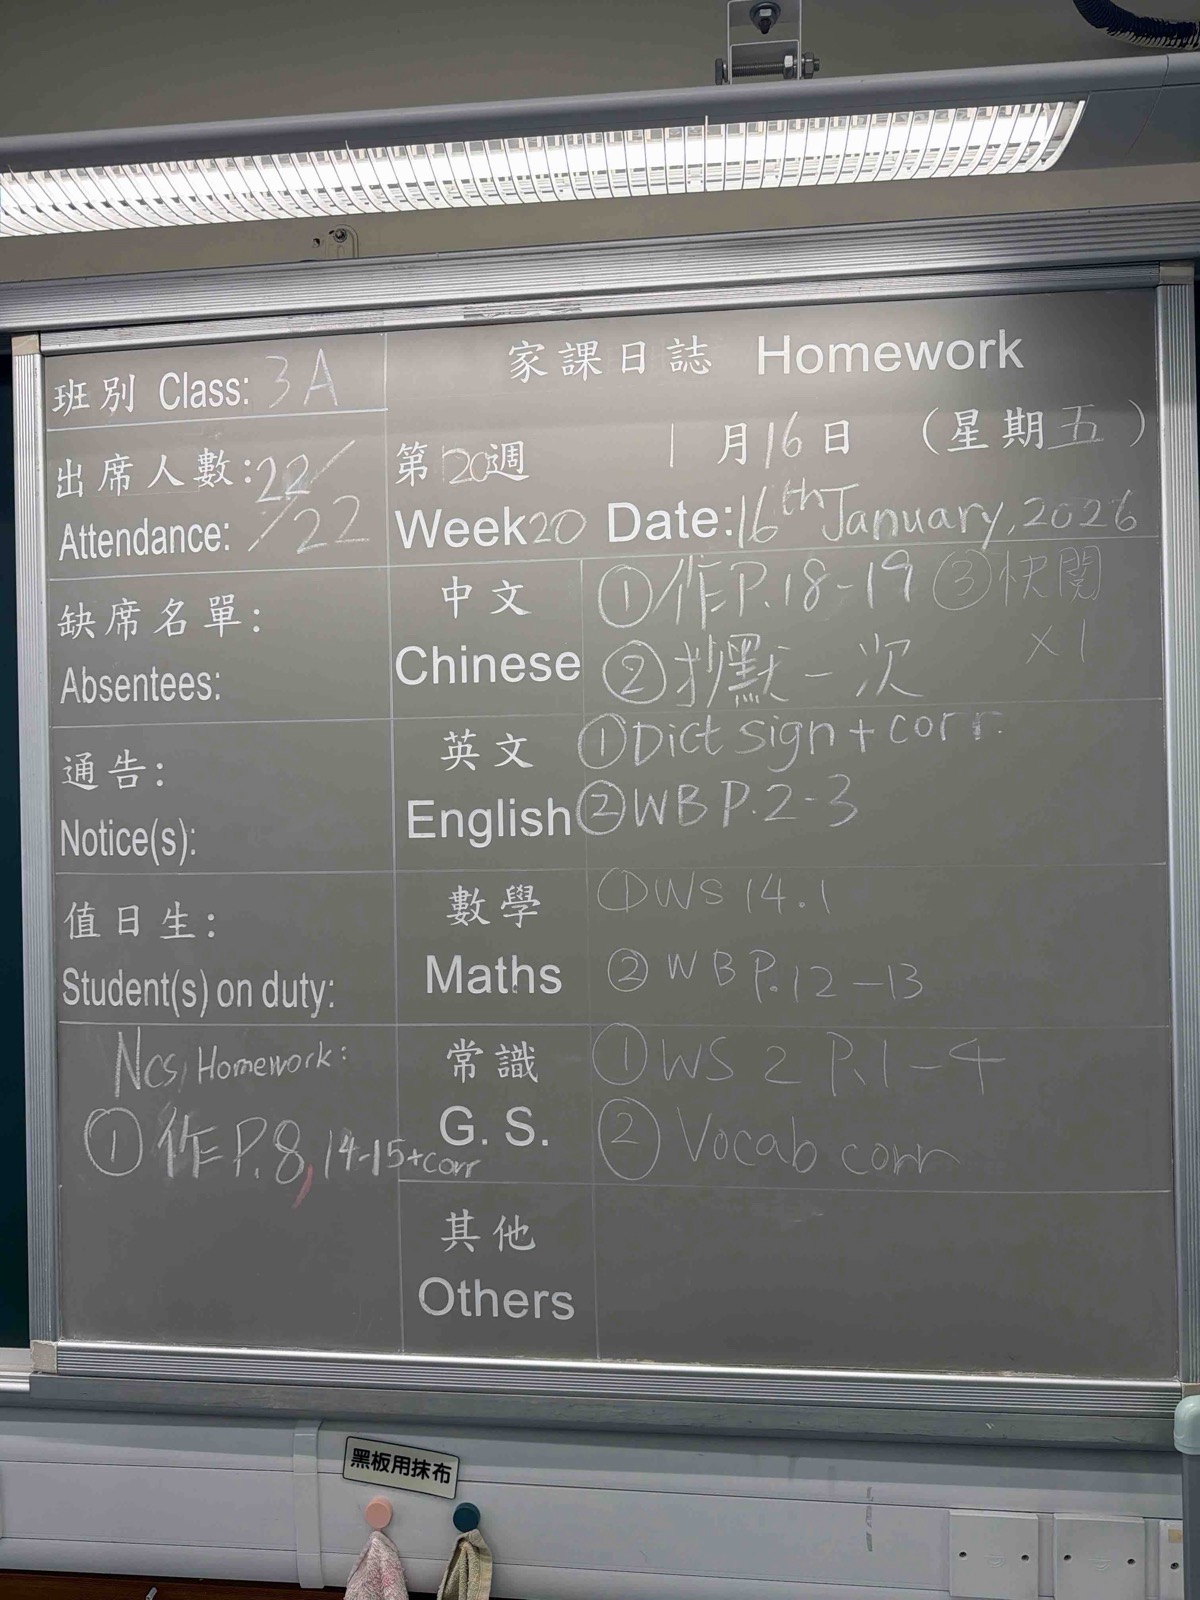 家課日誌 Homework
班別 Class: 3A
出席人數: 22/
Attendance: /22
第20週 1月16日 (星期五)
Week20 Date: 16th January, 2026
缺席名單:
Absentees:
通告:
Notice(s):
值日生:
Student(s) on duty:
Ncs Homework:
① 作P.8, 14-15+corr
中文
Chinese
①作P.18-19 ③快閱
x1
②抄默一次
英文
English
①Dict sign + corr.
②WB P.2-3
數學
Maths
①WS 14.1
② WB P.12-13
常識
G. S.
①WS 2 P.1-4
② Vocab corr
其他
Others
黑板用抹布